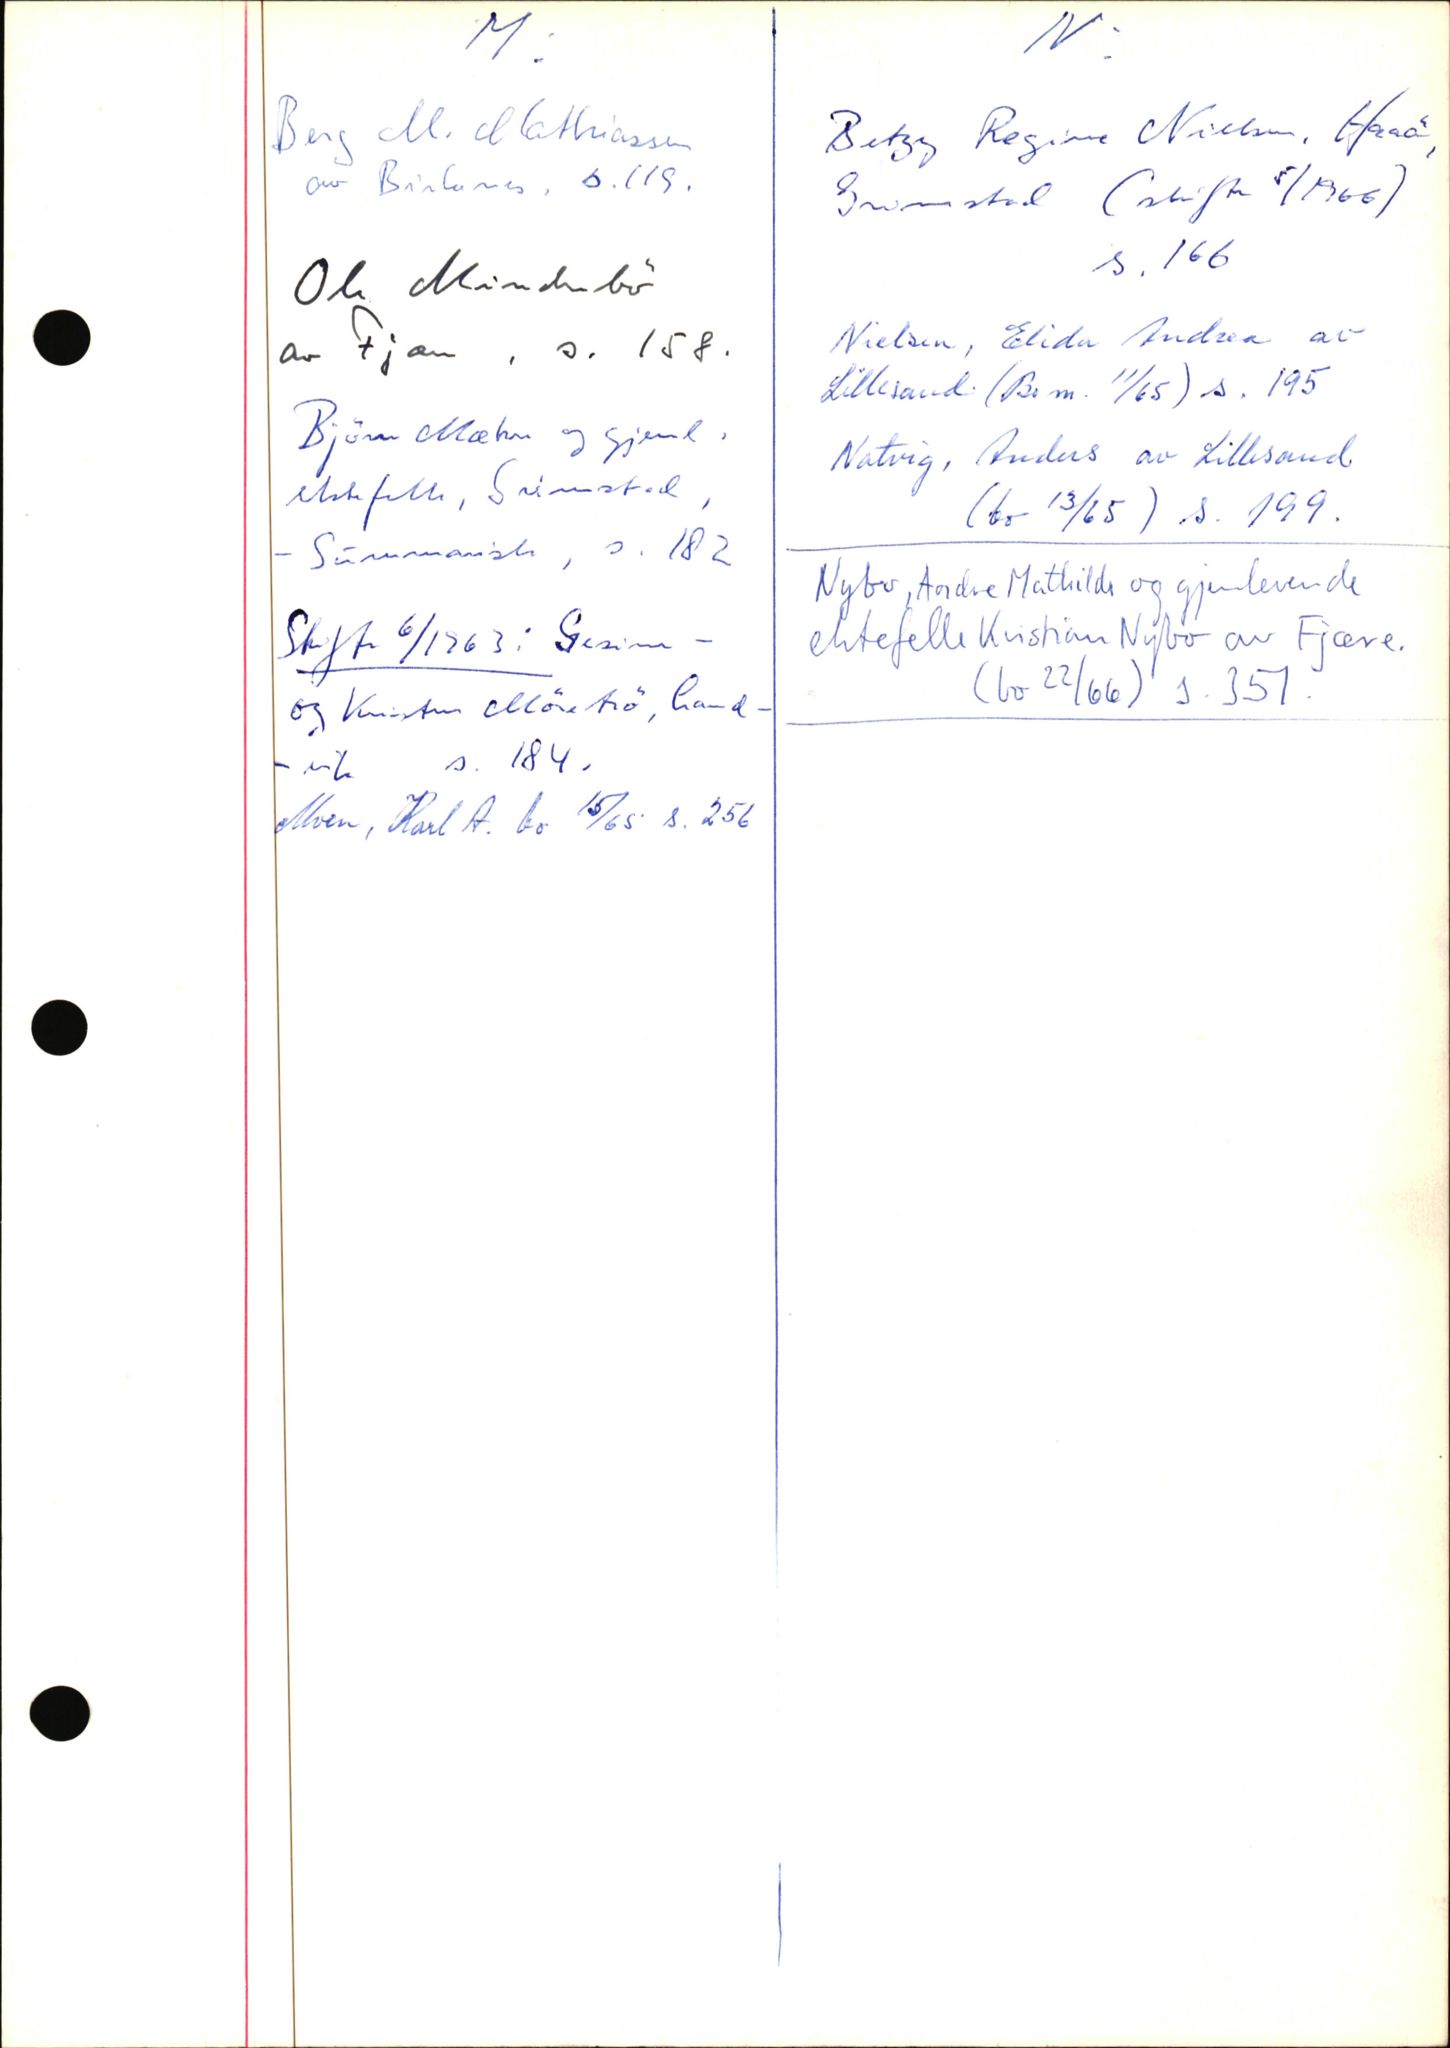 M:
Berg M. Mathiassen
av Birkenes, s. 119.
Ole
av Fjære, s. 158.
Björn og gjenl.
ektefelle, Grimstad,
- Summarisk, s. 182
Skifte 6/1963: Gesine -
og Kristen Möretrö, Land-
- vik s. 184.
Moen, Karl A. bo 15/65 s. 256
N:
Betzy Regine Nielsen,
Grimstad (skifte 5/1966)
s. 166
Nielsen, Elida Andrea av
Lillesand (Bo m. 11/65) s. 195
Natvig, Anders av Lillesand
(bo 13/65) s. 199.
Nybo, Andre Mathilde og gjenlevende
ektefelle Kristian Nybo av Fjære.
(bo 22/66) s. 351.